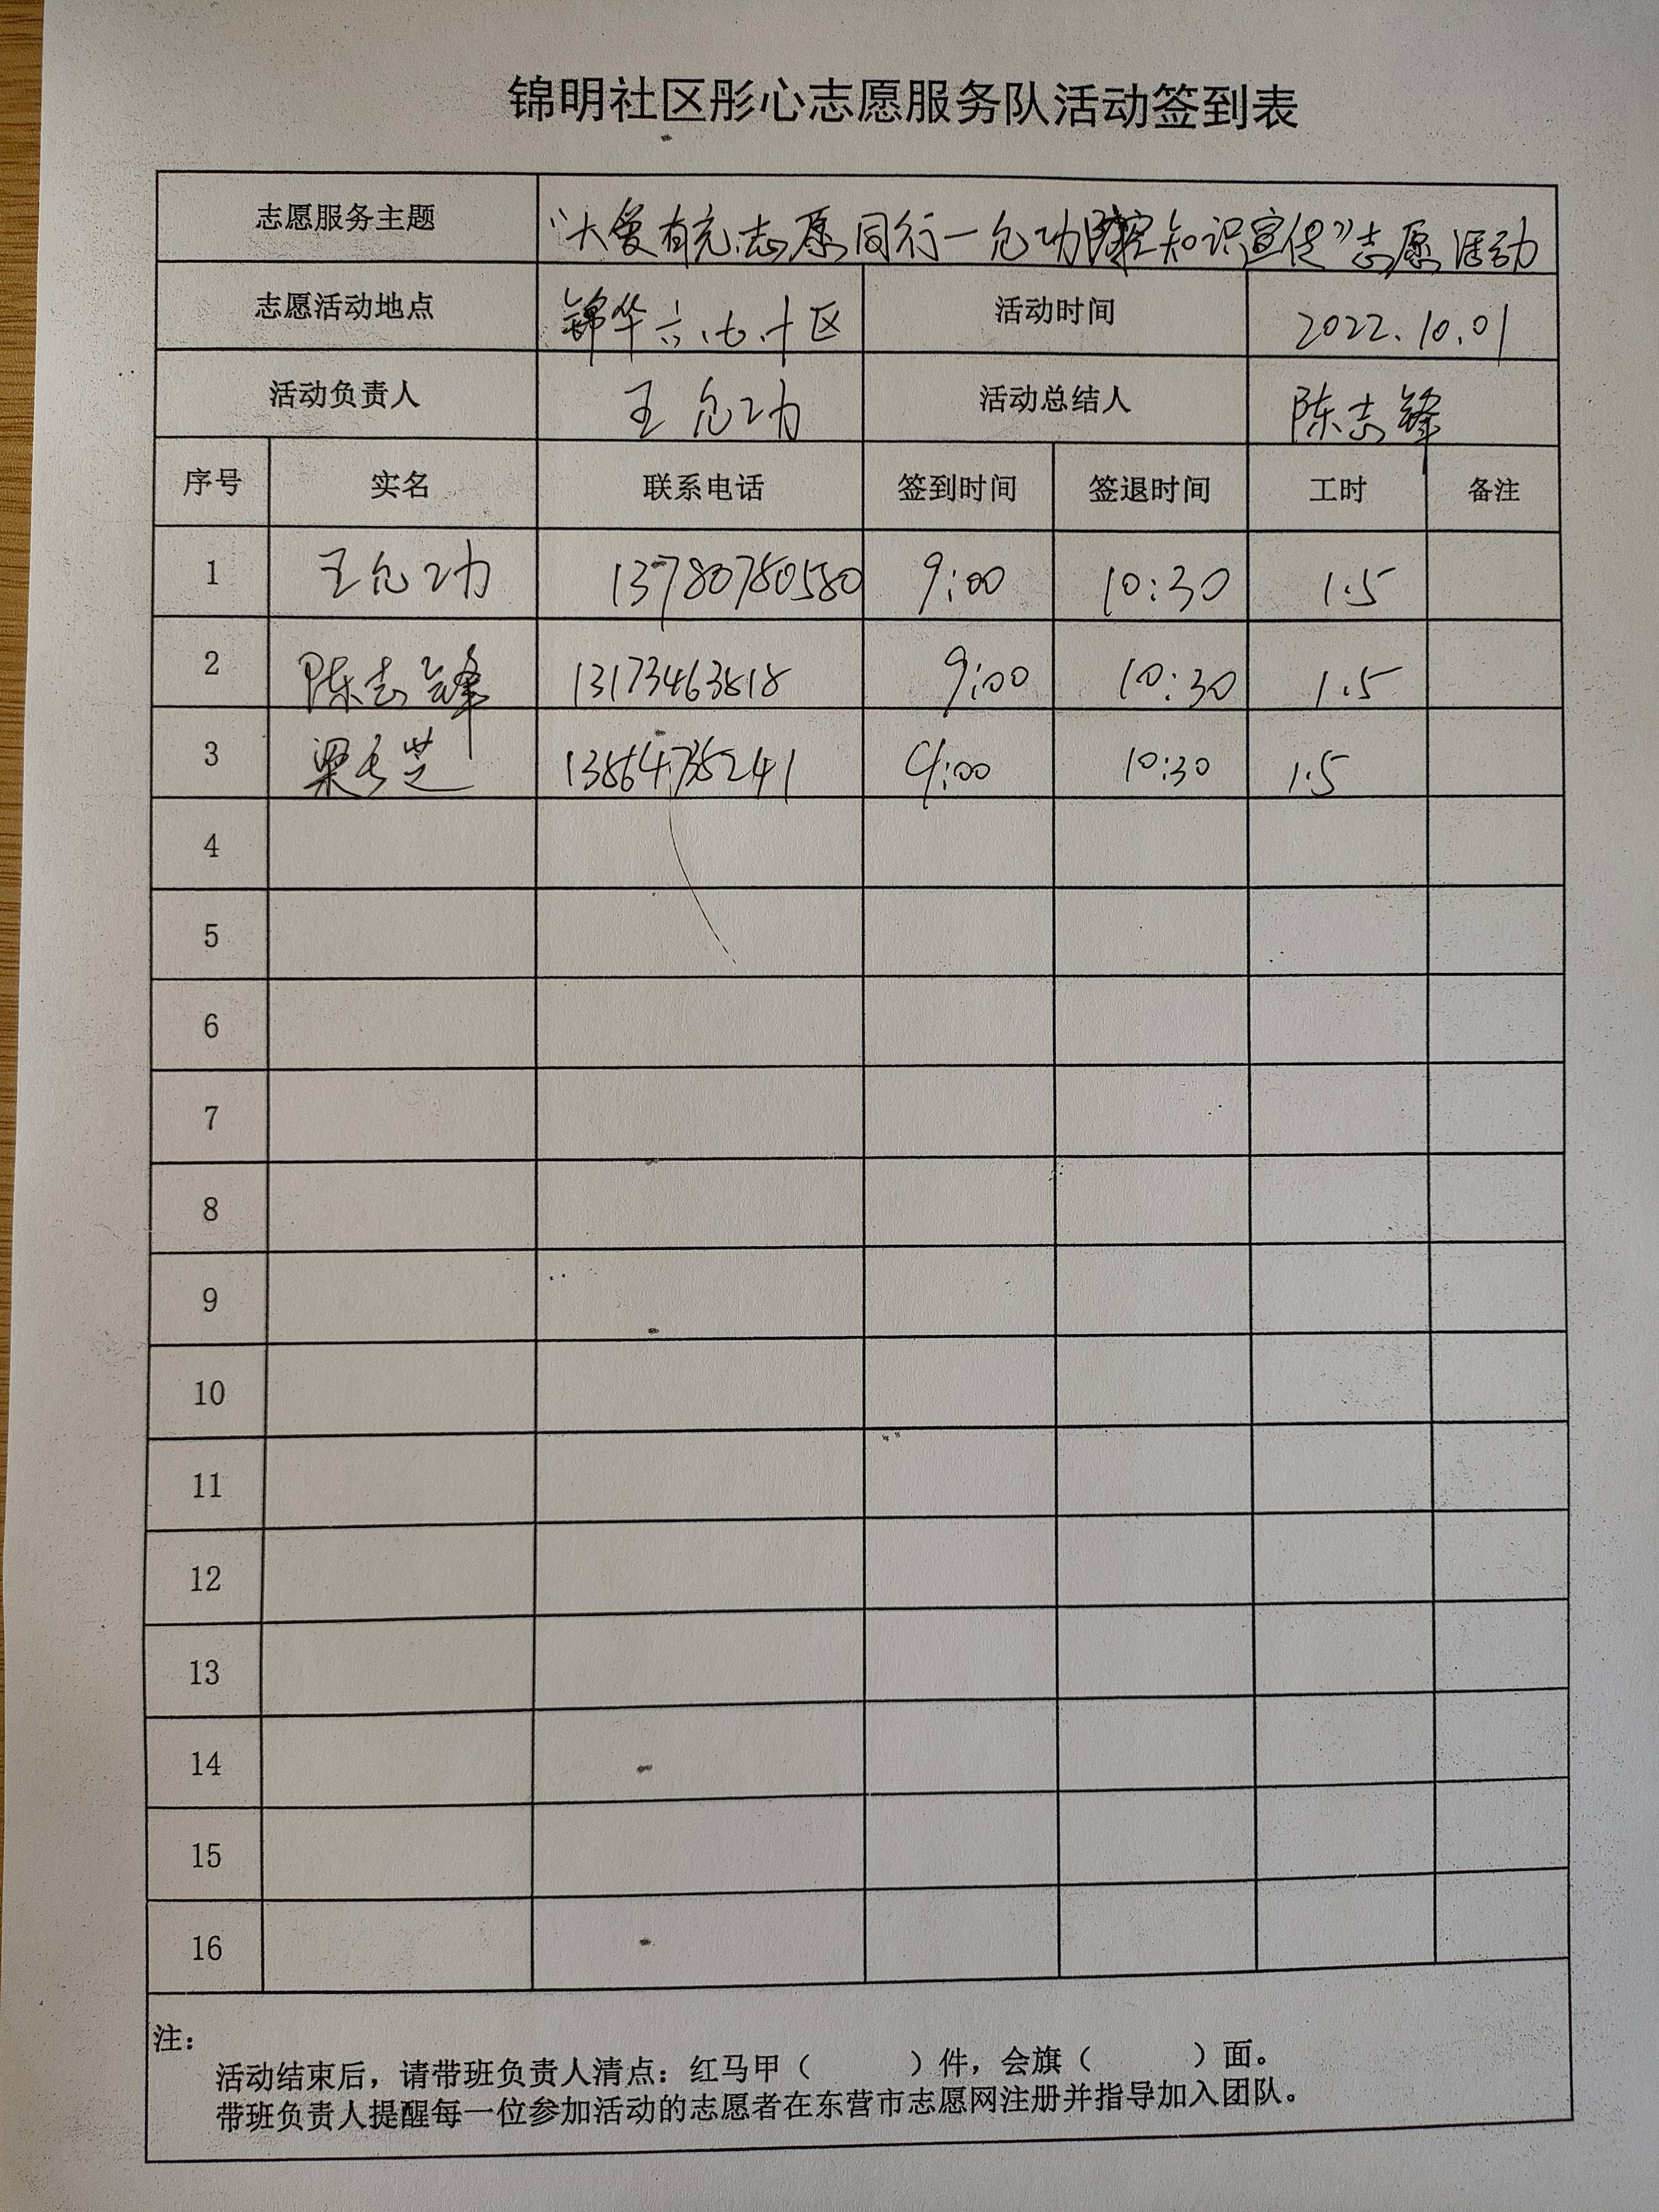 锦明社区彤心志愿服务队活动签到表
志愿服务主题 “大爱有充.志愿同行一允功防控知识宣传”志愿活动
志愿活动地点 锦华六.七.十区 活动时间 2022.10.01
活动负责人 王允功 活动总结人 陈志锋
序号 实名 联系电话 签到时间 签退时间 工时 备注
1 王允功 13780780580 9:00 10:30 1.5
2 陈志锋 13173463818 9:00 10:30 1.5
3 梁长芝 9:00 10:30 1.5
4
5
6
7
8
9
10
11
12
13
14
15
16
注：
活动结束后，请带班负责人清点：红马甲（ ）件，会旗（ ）面。
带班负责人提醒每一位参加活动的志愿者在东营市志愿网注册并指导加入团队。